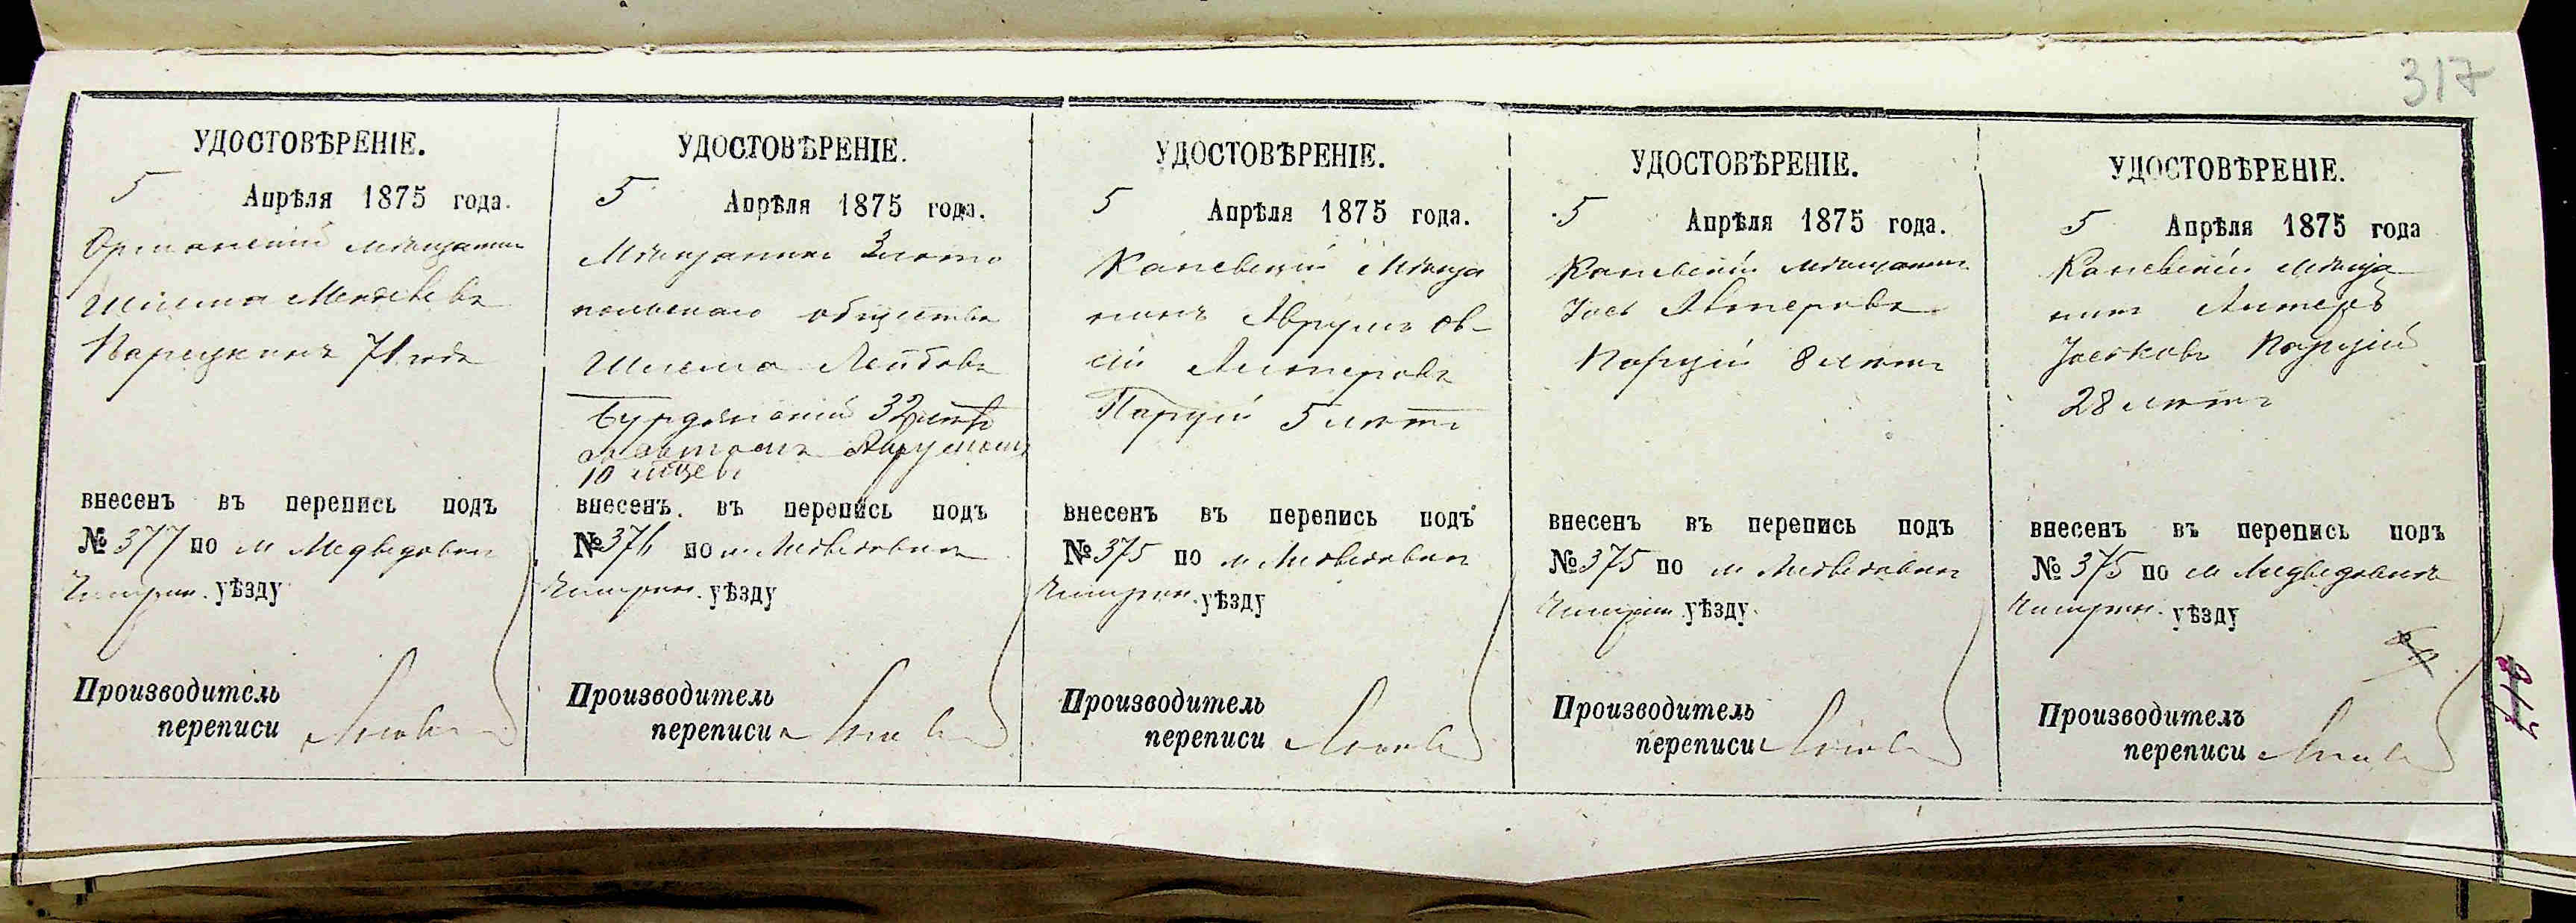 317
УДОСТОВѢРЕНІЕ.
5 Апрѣля 1875 года.
мѣщанинъ
Шлема
71 годъ
внесенъ въ перепись подъ
№ 377 по м Медведовкѣ
Чигрин. уѣзду
Производитель
переписи
УДОСТОВѢРЕНІЕ.
5 Апрѣля 1875 года.
Мѣщанинъ Злото
польскаго общества
Шлема Лейбовъ
Бурдянскій 32 лѣтъ
10 мцевъ
внесенъ въ перепись подъ
№ 376 по м Медведовкѣ
Чигрин. уѣзду
Производитель
переписи
УДОСТОВѢРЕНІЕ.
5 Апрѣля 1875 года.
Каневскій мѣща
нинъ Аврумъ Ов-
сій Литеровъ
Паруій 5 лѣтъ
внесенъ въ перепись подъ
№ 375 по м Медведовкѣ
Чигрин. уѣзду
Производитель
переписи
УДОСТОВѢРЕНІЕ.
5 Апрѣля 1875 года.
Каневскій мѣщанинъ
Іось Литеровъ
8 лѣтъ
внесенъ въ перепись подъ
№ 375 по м Медведовкѣ
Чигрин. уѣзду.
Производитель
переписи
УДОСТОВѢРЕНІЕ.
5 Апрѣля 1875 года
Каневскій мѣща
нинъ Литеръ
Іоськовъ
28 лѣтъ
внесенъ въ перепись подъ
№ 375 по м Медведовкѣ
Чигрин. уѣзду
Производитель
переписи